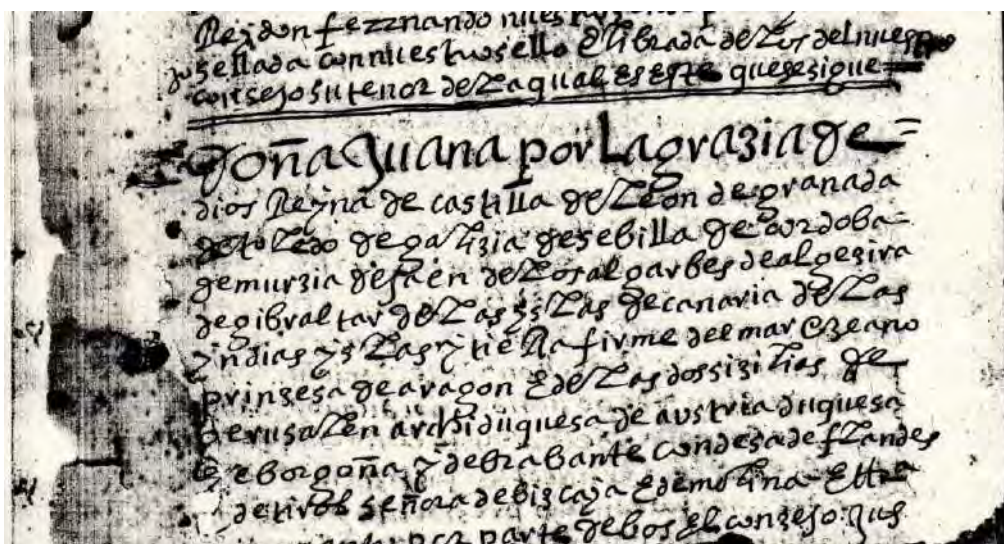 Rey don fezznando nues
zo sellada con nuestro sello E librada de Los del nuestro
consejo su tenor de La qual Es Este que se sigue
doña Juana por La grazia de =
dios Reyna de castilla de Leon de granada
de toledo de galizia de sebilla de cordoba =
de murzia de jaen de Los algarbes de algezira
de gibraltar de Las yslas de canaria de Las
yndias yslas y tierra firme del mar ozeano
prinzesa de aragon E de Las dos sizilias de
Jerusalen archiduquesa de austria duquesa
de borgoña y de brabante condesa de flandes
de tirol señora de bizcaja E de molina Ettª
por parte de bos El conzejo jus